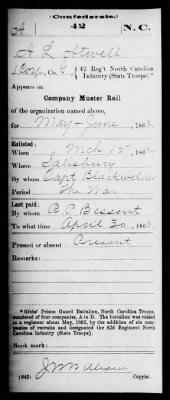 (Confederate.)
A 42 N.C.
A L Atwell
Corp., Co. , 42 Reg't North Carolina
Infantry (State Troops).*
Appears on
Company Muster Roll
of the organization named above,
for May – June, 1863.
Enlisted:
When Mch 15, 186
Where Salisbury
By whom Capt Blackwelder
Period The War
Last paid:
By whom B. C. Bessent
To what time April 30, 1863.
Present or absent Present
Remarks:
*Gibbs' Prison Guard Battalion, North Carolina Troops,
consisted of four companies, A to D. The battalion was raised
to a regiment about May, 1862, by the addition of six com-
panies of recruits and designated the 42d Regiment North
Carolina Infantry (State Troops).
Book mark:
(642) Copyist.